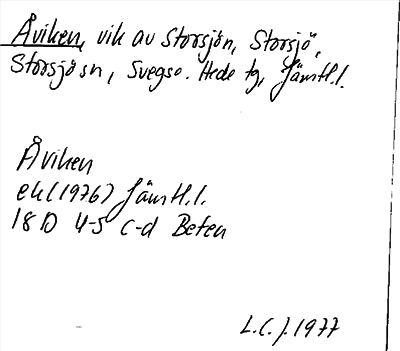 Åviken, vik av Storsjön, Storsjö,
Storsjö sn, Svegs o. Hede tg, Jämtl.l.
Åviken
ek (1976) Jämtl.l.
18 D 4-5 c-d Beten
L.C.J. 1977